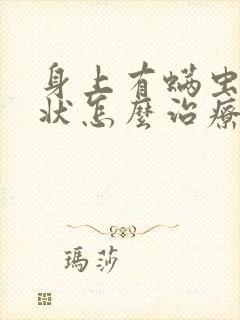 身上有螨虫
状怎麼治療
瑪莎